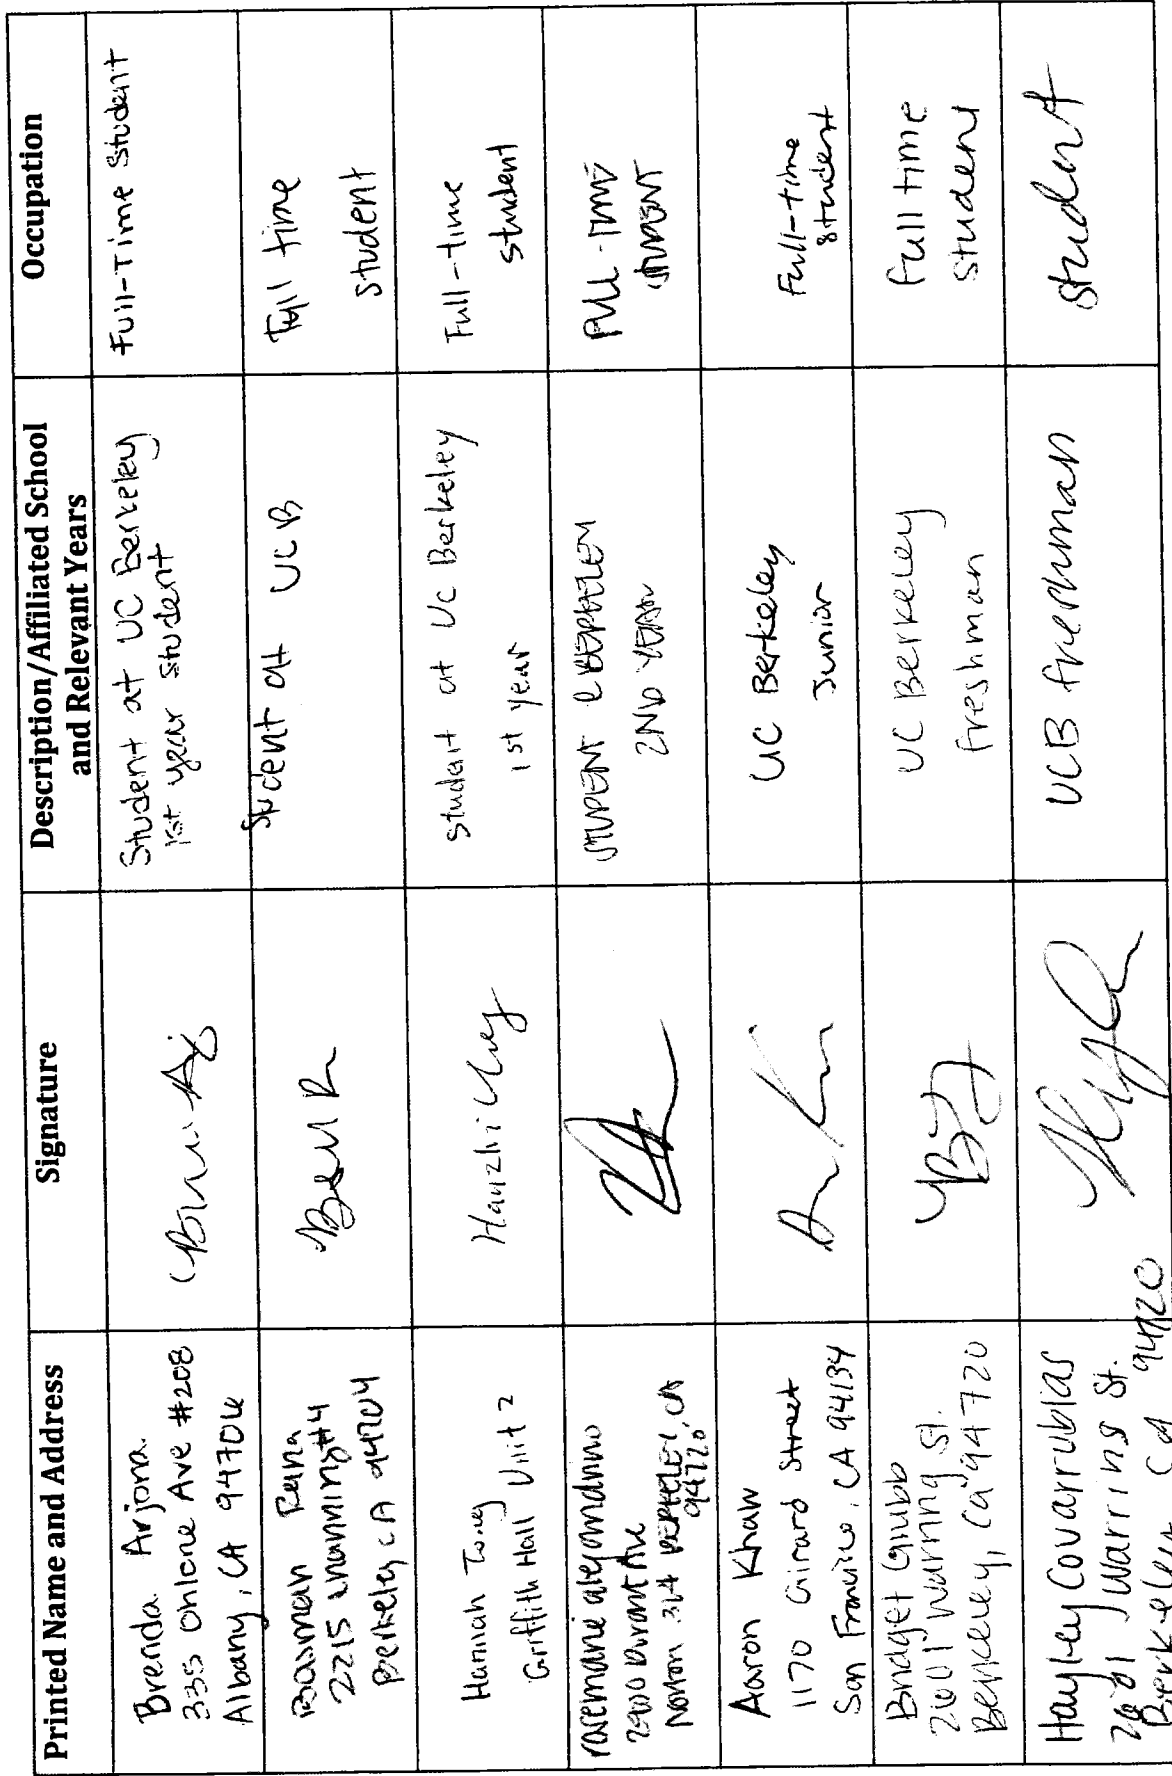 Printed Name and Address
Signature
Description/Affiliated School
and Relevant Years
Occupation
Brenda Arjona
335 Ohlone Ave #208
Albany, CA 94706
Student at UC Berkeley
1st year student
Full-Time Student
Rana
2215 Channing #4
Berkeley CA 94704
Student at UCB
Full time
student
Hannah Tong
Griffith Hall Unit 2
student at UC Berkeley
1st year
Full-time
student
rosemarie alejandrino
2400 Durant Ave
314 BERKELEY, CA
94720
STUDENT @ BERKELEY
2ND YEAR
FULL-TIME
STUDENT
Aaron Khaw
1170 Girard Street
San Francisco, CA 94134
UC Berkeley
Junior
Full-time
student
Bridget Grubb
2601 Warring St.
Berkeley, Ca 94720
UC Berkeley
freshman
full time
student
Hayley Covarrubias
2601 Warring St.
Berkeley, Ca 94720
UCB freshman
student